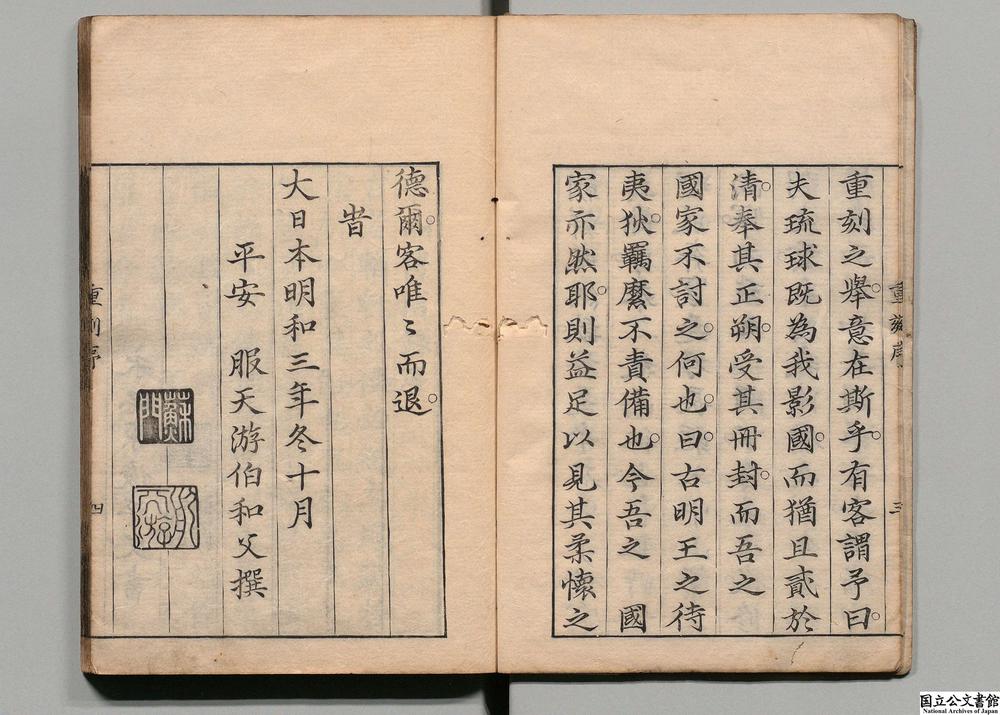 重刻之擧。意在斯乎。有客謂予曰。
夫琉球既為我影國。而猶且貳於
清。奉其正朔。受其冊封。而吾之
國家不討之何也。曰古明王之待
夷狄。羈縻不責備也。今吾之　國
家亦然耶。則益足以見其柔懷之
重刻序
三
德爾。客唯〻而退。
旹
大日本明和三年冬十月
平安　服天游伯和父撰
重刻序
四
国立公文書館
National Archives of Japan